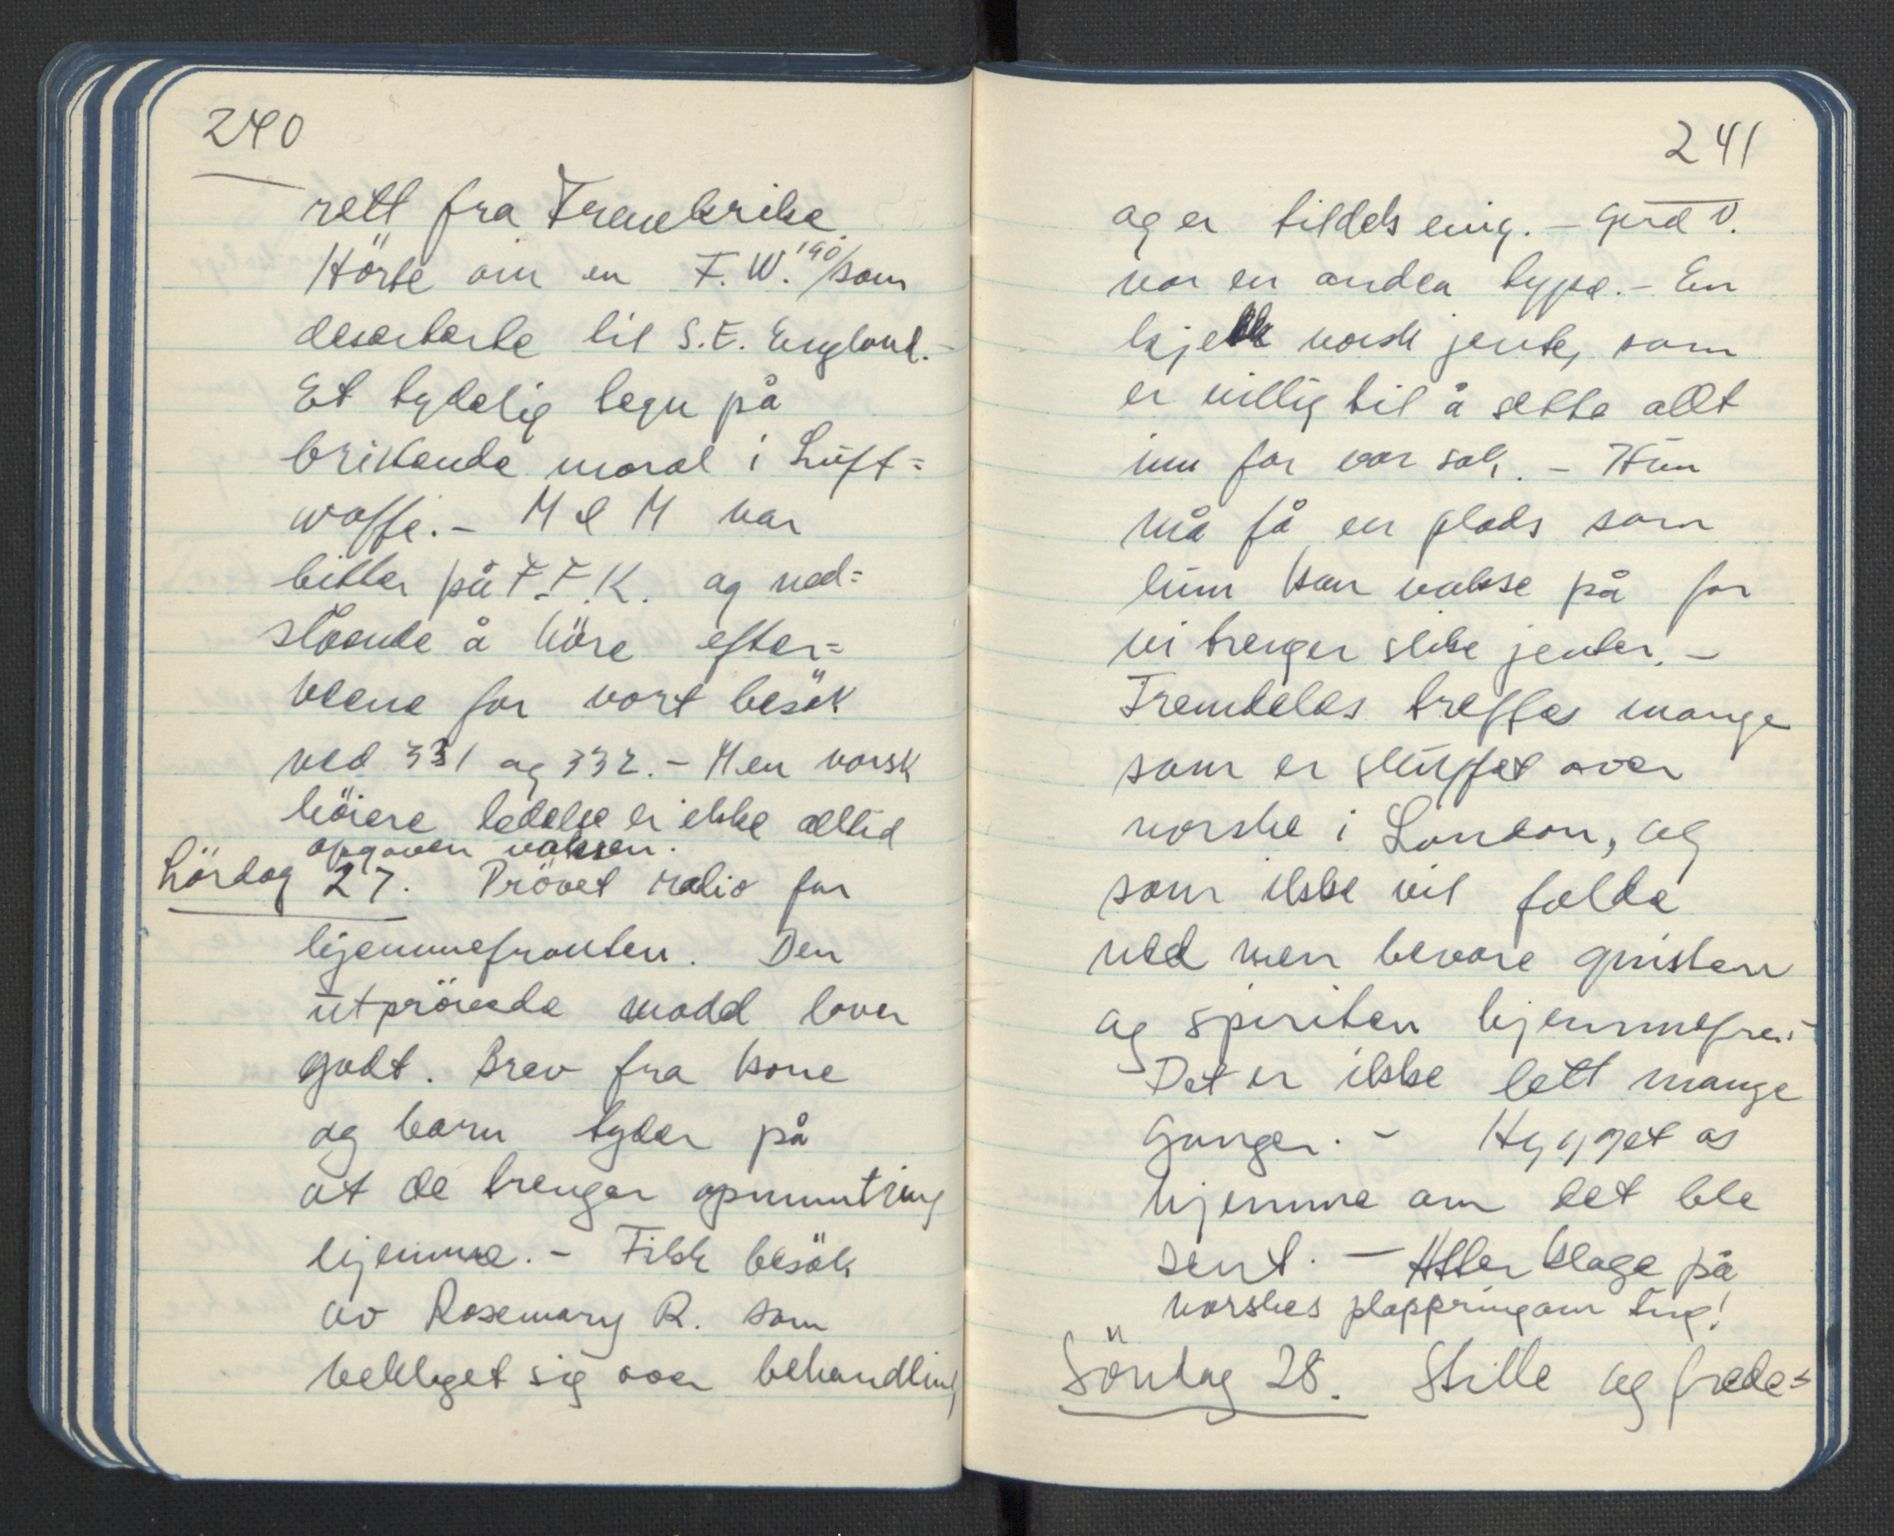 240
rett fra Frankrike.
Hörte om en F.W. 190/som
deserterte til S.E. England.-
Et tydelig tegn på
bristende moral i Luft=
waffe.- M & M var
bitter på F.F.K. og ned=
sloende å höre efter=
veene for vort besök
ved 331 og 332.- Men norsk
höiere ledelse er ikke alltid
opgaven voksen.
Lördag 27. Prövet radio for
hjemmefronten. Den
utprövede modell lover
godt. Brev fra kone
og barn tyder på
at de trenger opmuntring
hjemme.- Fikk besök
av Rosemary R. som
beklaget sig over behandling
241
og er tildels enig.- Gerd V.
var en anden type.- En
kjekk norsk jente, som
er villig til å sette allt
inn for vor sak.- Hun
må få en plads som
hun kan vokse på for
vi trenger slike jenter.-
Fremdeles treffes mange
som er skuffet over
norske i London, og
som ikke vil falde
ned men bevare gnisten
og spiriten hjemmefra.-
Det er ikke lett mange
ganger.- Hygget os
hjemme om det ble
sent.- Atter klage på
norskes plappring om ting!
Söndag 28. Stille og frede-